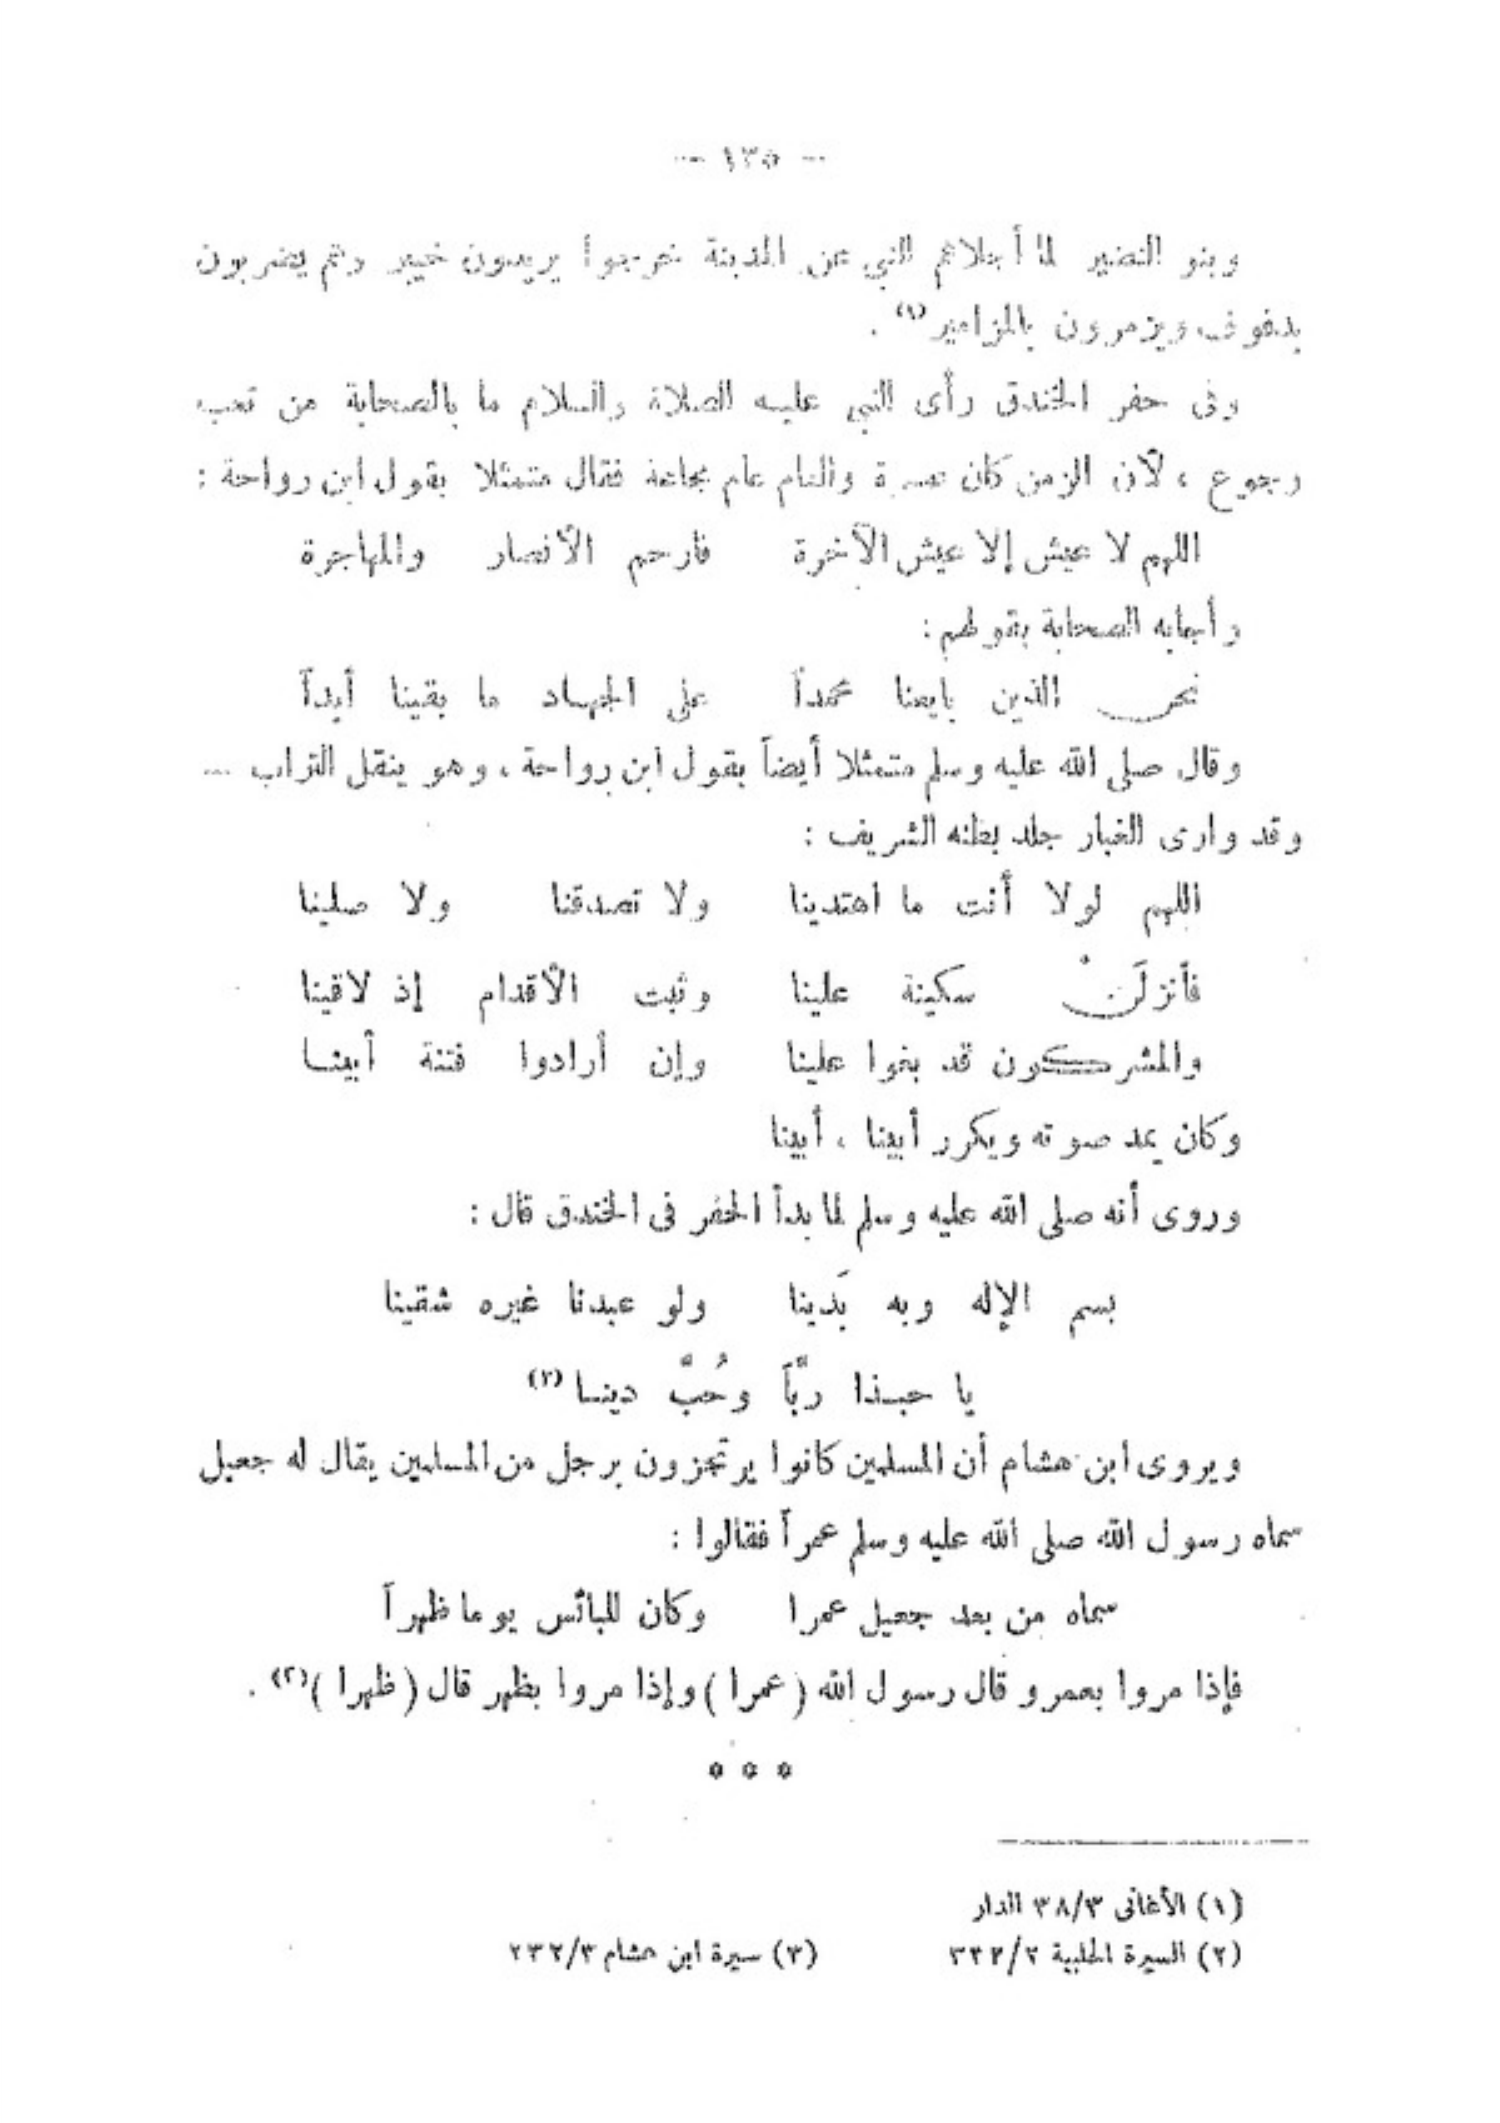 — ١٣٥ —
وبنو النضير لما أجلاهم النبي عن المدينة خرجوا يريدون خيبر وهم يضربون
بدفوف ويزمرون بالمزامير (١) .
وفى حفر الخندق رأى النبي عليه الصلاة والسلام ما بالصحابة من تعب
وجوع ، لأن الزمن كان عسرة والعام عام مجاعة فقال متمثلا بقول ابن رواحة :
اللهم لا عيش إلا عيش الآخرة فارحم الأنصار والمهاجرة
وأجابه الصحابة بقولهم :
نحن الذين بايعنا محمداً على الجهاد ما بقينا أبداً
وقال صلى الله عليه وسلم متمثلا أيضاً بقول ابن رواحة ، وهو ينقل التراب ...
وقد وارى الغبار جلد بطنه الشريف :
اللهم لولا أنت ما اهتدينا ولا تصدقنا ولا صلينا
فأنزلَنْ سكينة علينا وثبت الأقدام إذ لاقينا
والمشركون قد بغوا علينا وإن أرادوا فتنة أبينا
وكان يمد صوته ويكرر أبينا ، أبينا
وروى أنه صلى الله عليه وسلم لما بدأ الحفر فى الخندق قال :
بسم الإله وبه بَدينا ولو عبدنا غيره شقينا
يا حبذا ربَّاً وحُبَّ دينا (٢)
ويروى ابن هشام أن المسلمين كانوا يرتجزون برجل من المسلمين يقال له جعيل
سماه رسول الله صلى الله عليه وسلم عمراً فقالوا :
سماه من بعد جعيل عمرا وكان للبائس يوما ظهراً
فإذا مروا بعمرو قال رسول الله ( عمرا ) وإذا مروا بظهر قال ( ظهرا ) (٣) .
* * *
(١) الأغانى ٣٨/٣ الدار
(٢) السيرة الحلبية ٣٣٢/٢ (٣) سيرة ابن هشام ٢٣٢/٣